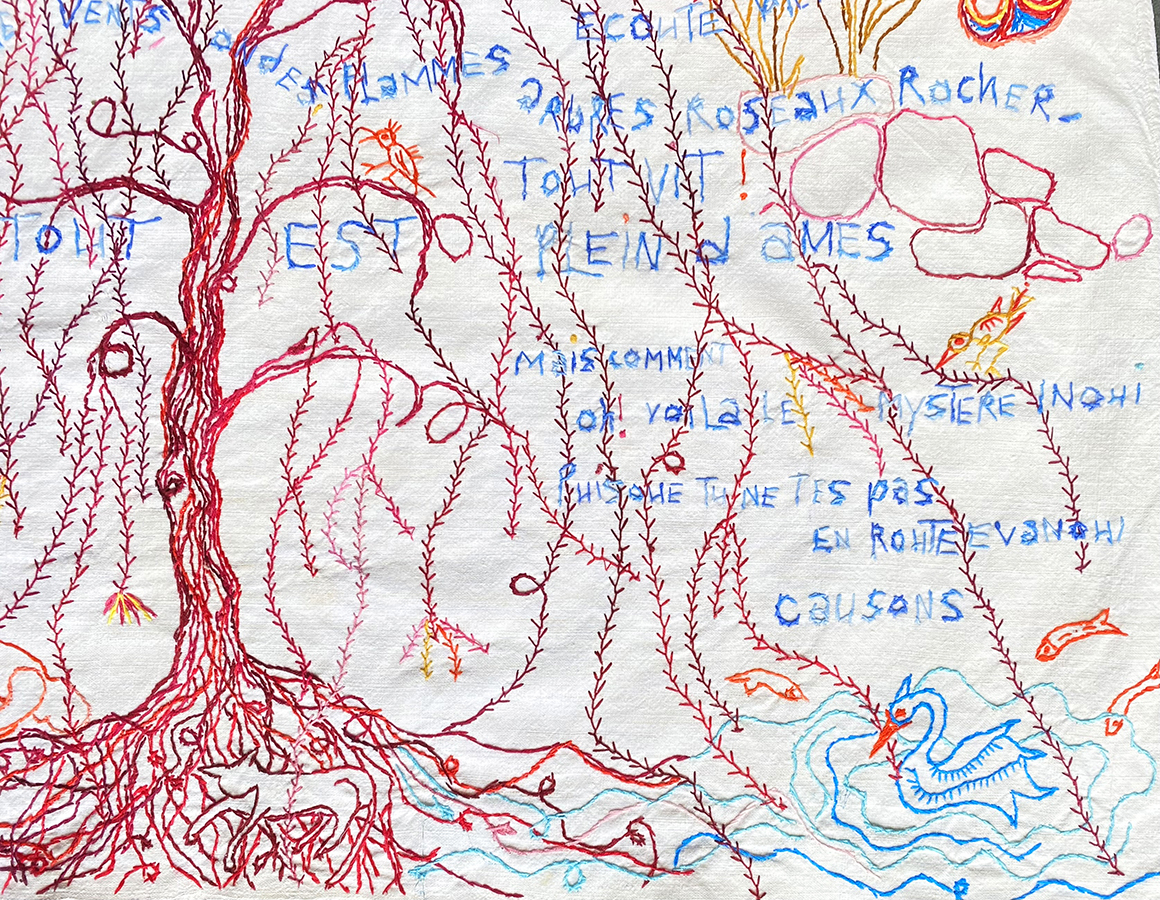 ECOUTE
VENTS ondES FLaMMES
aRBRES ROSEaUX ROCHER_
TOUT VIT !
TOUT EST PLEIN d âMES
MaIS COMMENT
oh! voiLa LE MYSTERE INOUI
PUISQUE TU NE T'ES pas
EN ROUTE EVaNOUI
causoNS